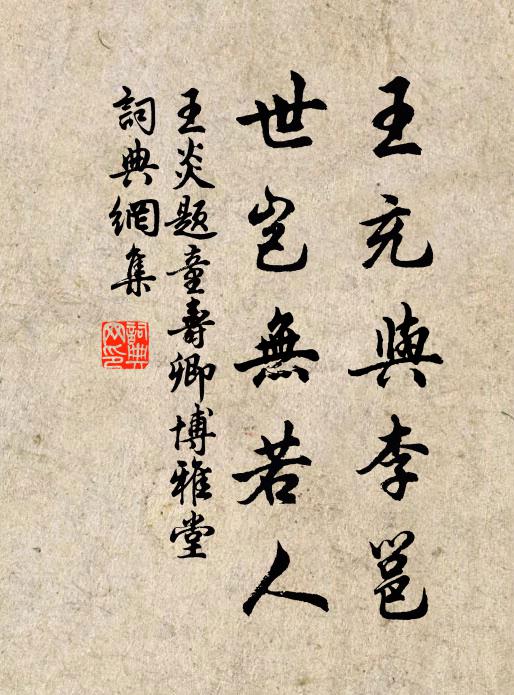 王充與李邕
世豈無若人
王炎題童壽卿博雅堂
詞典網集
詞典網印